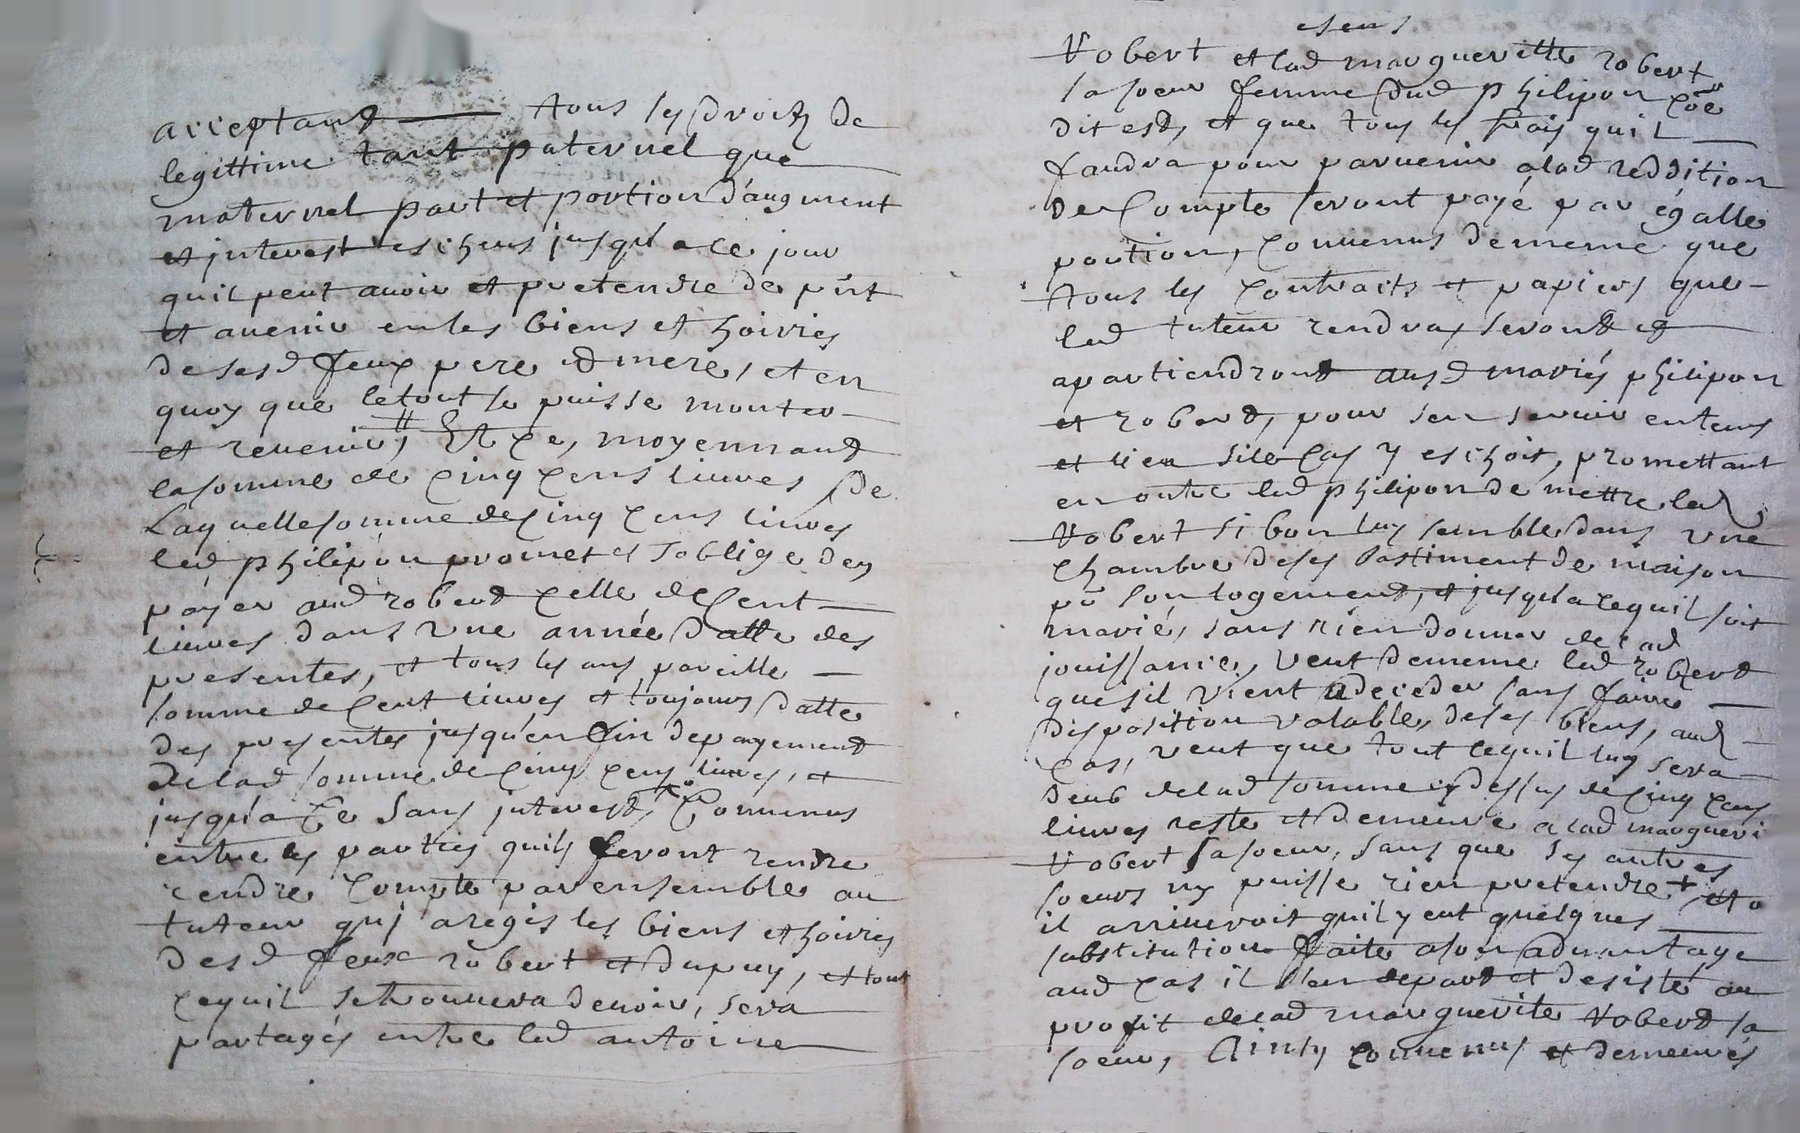 acceptant tous les droits de
legittime tant paternel que
maternel part et portion d'augment
et interest escheus jusqu'a ce jour
qu'il peut avoir et pretendre de pnt
et avenir en les biens et hoiries
de sesd feux pere et mere, et en
quoy que le tout se puisse monter
et revenir, Et ce, moyennand
la somme de cinq cens livres De
Laquelle somme de cinq cens livres
led philipon promet et s'oblige d'en
payer aud robert celle de Cent
livres dans une année datte des
presentes, et tous les ans pareille
somme de Cent livres et toujours datte
des presentes jusqu'en fin de payement
de lad somme de cinq cens livres, et
jusqu'a Ce Sans interest, Convenus
entre les parties quils feront rendre
rendre Compte par ensemble au
tuteur quj a regis les biens et hoiries
desd feux robert et dupuy, et tout
cequil se trouvera devoir, sera
partagés entre led antoine
Robert et lad margueritte robert
sa soeur femme dud philipon coe
dit est, et que tous les frais quil
faudra pour parvenir a lad reddition
de Compte seront payé par égalle
portion, convenus de meme que
tous les contraits et papiers que
led tuteur rendra, seront et
apartiendront ausd mariés philipon
et robert, pour s'en servir en tems
et lieu si le cas y eschoit, promettant
en outre led philipon de mettre led
Robert si bon luy semble dans une
chambre de ses bastiment de maison
pr son logement, et jusqu'a ce quil soit
marié, sans rien donner de lad
jouissance, veut de meme led robert
que s'il vient a deceder sans faire
disposition valable de ses biens, aud
cas, veut que tout ce quil luy sera
deub de lad somme cy dessus de cinq cens
livres reste et demeure a lad margueri
Robert sa soeur, sans que ses autres
soeurs ny puisse rien pretendre + et o
il arriveroit quil y eut quelques
substitution faite a son advantage
aud cas il s'en depart et desiste au
profit de lad marguerite Robert sa
soeur, Ainsy convenus et demeurés